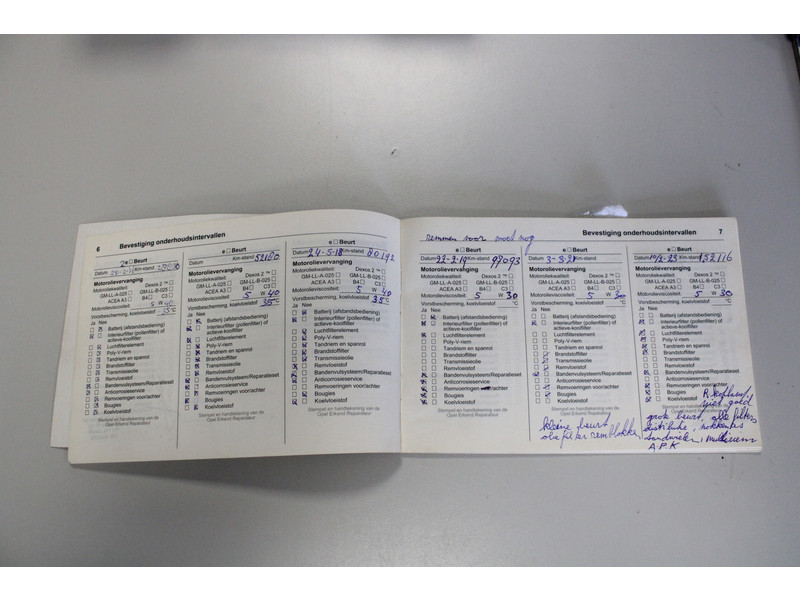 6 Bevestiging onderhoudsintervallen
2e Beurt
Datum Km-stand
Motorolievervanging
Motoroliekwaliteit: Dexos 2 ™
GM-LL-A-025 GM-LL-B-025
ACEA A3 B4 C3
Motorolieviscositeit: 5 W 40
Vorstbescherming, koelvloeistof 35°C
Ja Nee
Batterij (afstandsbediening)
Interieurfilter (pollenfilter) of
actieve-koolfilter
Luchtfilterelement
Poly-V-riem
Tandriem en spannol
Brandstoffilter
Transmissieolie
Remvloeistof
Bandenvulsysteem/Reparatieset
Anticorrosieservice
Remvoeringen voor/achter
Bougies
Koelvloeistof
Stempel en handtekening van de
Opel Erkend Reparateur
e Beurt
Datum Km-stand 52180
Motorolievervanging
Motoroliekwaliteit: Dexos 2 ™
GM-LL-A-025 GM-LL-B-025
ACEA A3 B4 C3
Motorolieviscositeit: 5 W 40
Vorstbescherming, koelvloeistof 35°C
Ja Nee
Batterij (afstandsbediening)
Interieurfilter (pollenfilter) of
actieve-koolfilter
Luchtfilterelement
Poly-V-riem
Tandriem en spannol
Brandstoffilter
Transmissieolie
Remvloeistof
Bandenvulsysteem/Reparatieset
Anticorrosieservice
Remvoeringen voor/achter
Bougies
Koelvloeistof
Stempel en handtekening van de
Opel Erkend Reparateur
e Beurt
Datum 24-5-18 Km-stand 80192
Motorolievervanging
Motoroliekwaliteit: Dexos 2 ™
GM-LL-A-025 GM-LL-B-025
ACEA A3 B4 C3
Motorolieviscositeit: 5 W 40
Vorstbescherming, koelvloeistof 35°C
Ja Nee
Batterij (afstandsbediening)
Interieurfilter (pollenfilter) of
actieve-koolfilter
Luchtfilterelement
Poly-V-riem
Tandriem en spannol
Brandstoffilter
Transmissieolie
Remvloeistof
Bandenvulsysteem/Reparatieset
Anticorrosieservice
Remvoeringen voor/achter
Bougies
Koelvloeistof
Stempel en handtekening van de
Opel Erkend Reparateur
Bevestiging onderhoudsintervallen 7
remmen voor moet nog
e Beurt
Datum 22-2-19 Km-stand 99093
Motorolievervanging
Motoroliekwaliteit: Dexos 2 ™
GM-LL-A-025 GM-LL-B-025
ACEA A3 B4 C3
Motorolieviscositeit: 5 W 30
Vorstbescherming, koelvloeistof °C
Ja Nee
Batterij (afstandsbediening)
Interieurfilter (pollenfilter) of
actieve-koolfilter
Luchtfilterelement
Poly-V-riem
Tandriem en spannol
Brandstoffilter
Transmissieolie
Remvloeistof
Bandenvulsysteem/Reparatieset
Anticorrosieservice
Remvoeringen voor/achter
Bougies
Koelvloeistof
Stempel en handtekening van de
Opel Erkend Reparateur
e Beurt
Datum 3-3-21 Km-stand
Motorolievervanging
Motoroliekwaliteit: Dexos 2 ™
GM-LL-A-025 GM-LL-B-025
ACEA A3 B4 C3
Motorolieviscositeit: 5 W 30
Vorstbescherming, koelvloeistof °C
Ja Nee
Batterij (afstandsbediening)
Interieurfilter (pollenfilter) of
actieve-koolfilter
Luchtfilterelement
Poly-V-riem
Tandriem en spannol
Brandstoffilter
Transmissieolie
Remvloeistof
Bandenvulsysteem/Reparatieset
Anticorrosieservice
Remvoeringen voor/achter
Bougies
Koelvloeistof
Stempel en handtekening van de
Opel Erkend Reparateur
kleine beurt
olie filter remblokken
e Beurt
Datum Km-stand 152116
Motorolievervanging
Motoroliekwaliteit: Dexos 2 ™
GM-LL-A-025 GM-LL-B-025
ACEA A3 B4 C3
Motorolieviscositeit: 5 W 30
Vorstbescherming, koelvloeistof °C
Ja Nee
Batterij (afstandsbediening)
Interieurfilter (pollenfilter) of
actieve-koolfilter
Luchtfilterelement
Poly-V-riem
Tandriem en spannol
Brandstoffilter
Transmissieolie
Remvloeistof
Bandenvulsysteem/Reparatieset
Anticorrosieservice
Remvoeringen voor/achter
Bougies
Koelvloeistof
Stempel en handtekening van de
Opel Erkend Reparateur
grote beurt, alle filters
distributie,
A.P.K